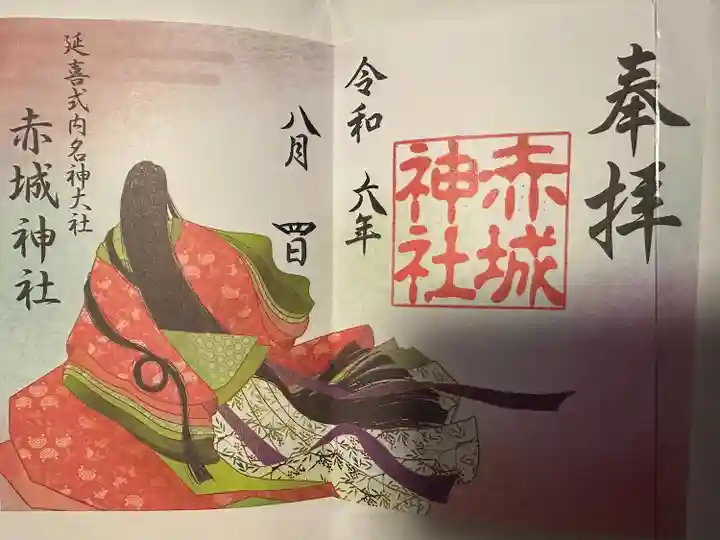 奉拝
赤城
神社
令和 六年
八月 四日
延喜式内名神大社
赤城神社